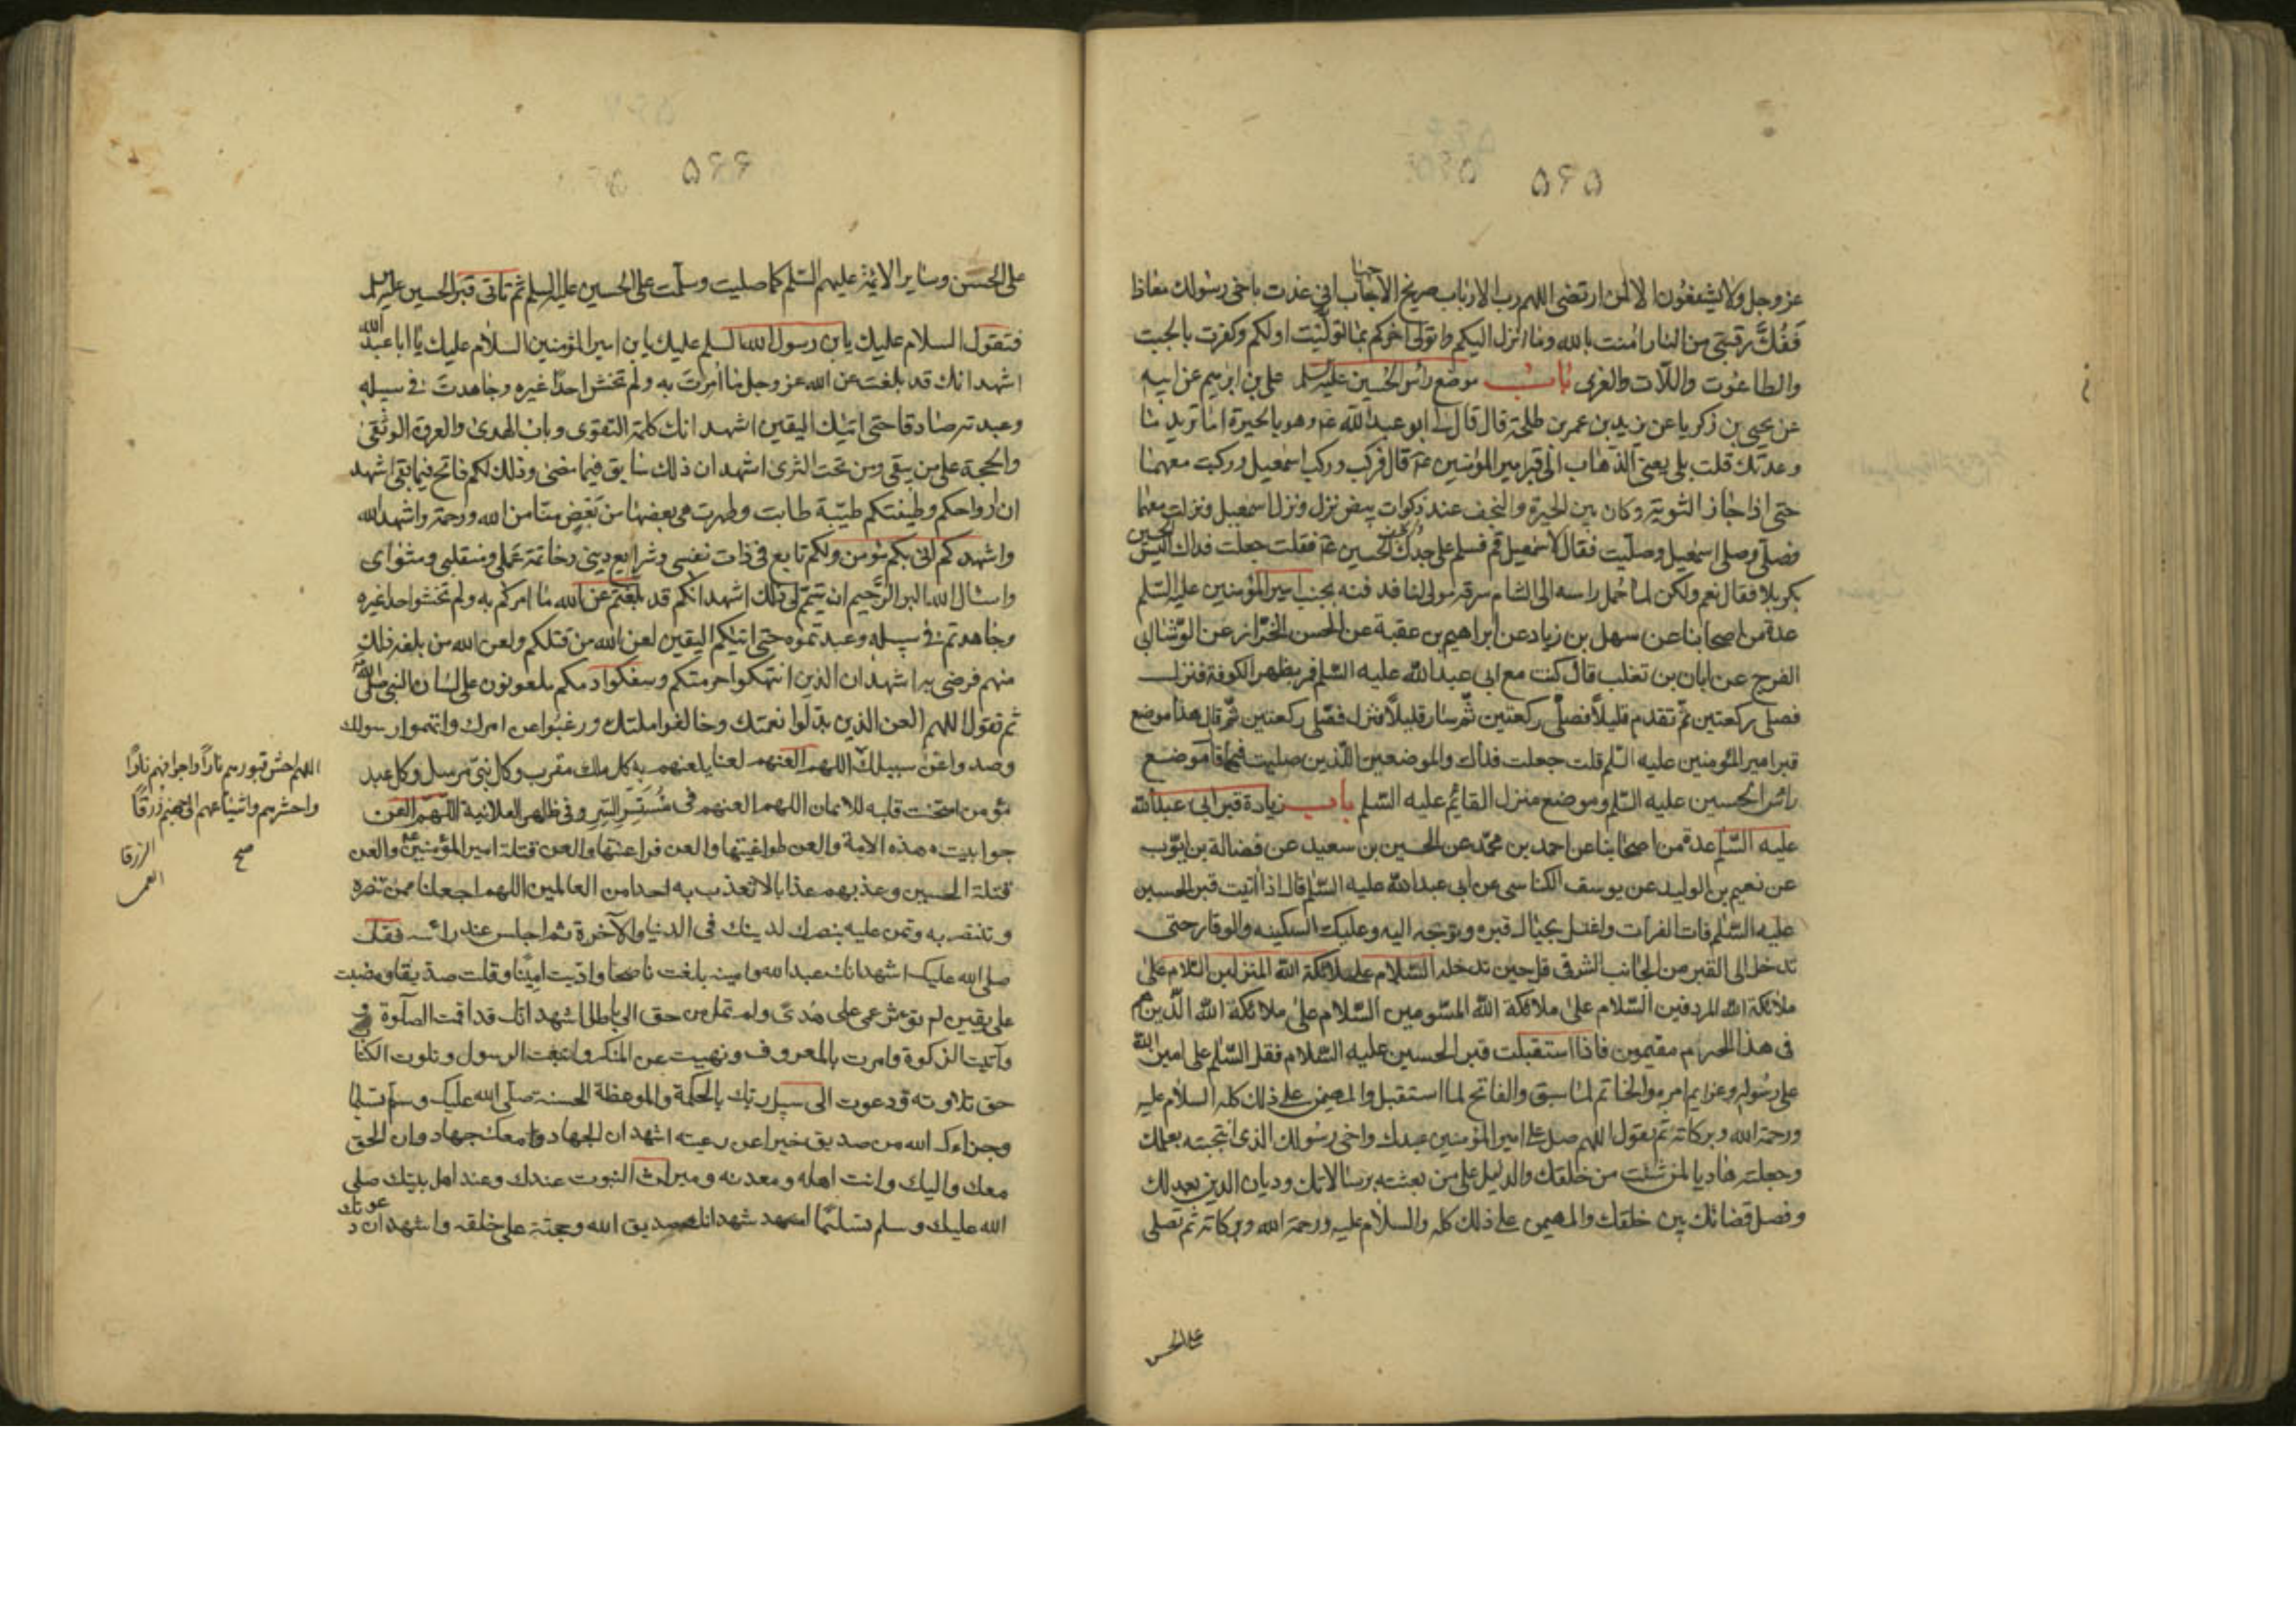 ۵۶۵
عز وجل ولا يشفعون الا لمن ارتضى اللهم رب الارباب صريخ الاحباب اني عذت باخي رسولك معاذا
ففك رقبتي من النار امنت بالله وما انزل اليكم واتولى اخركم بما توليت اولكم وكفرت بالجبت
والطاغوت واللات والعزى باب موضع راس الحسين عليه السلم علي بن ابرهيم عن ابيه
عن يحيى بن زكريا عن يزيد بن عمر بن طلحة قال قال لي ابو عبد الله ع وهو بالحيرة اما تريد ما
وعدتك قلت بلى يعني الذهاب الى قبر امير المؤمنين ع قال فركب وركب اسمعيل وركبت معهما
حتى اذا جاز الثوية وكان بين الحيرة والنجف عند ذكوات بيض نزل ونزل اسمعيل ونزلت معهما
فصلى وصلى اسمعيل وصليت فقال لاسمعيل قم فسلم على جدك الحسين ع فقلت جعلت فداك اليس الحسين
بكربلا فقال نعم ولكن لما حمل راسه الى الشام سرقه مولى لنا فدفنه بجنب امير المؤمنين عليه السلم
عدة من اصحابنا عن سهل بن زياد عن ابراهيم بن عقبة عن الحسن الخزاز عن الوشا ابي
الفرج عن ابان بن تغلب قال كنت مع ابي عبد الله عليه السلم فمر بظهر الكوفة فنزل
فصلى ركعتين ثم تقدم قليلا فصلى ركعتين ثم سار قليلا فنزل فصلى ركعتين ثم قال هذا موضع
قبر امير المؤمنين عليه السلم قلت جعلت فداك والموضعين اللذين صليت فيهما قال موضع
راس الحسين عليه السلم وموضع منزل القائم عليه السلم باب زيادة قبر ابي عبد الله
عليه السلم عدة من اصحابنا عن احمد بن محمد عن الحسين بن سعيد عن فضالة بن ايوب
عن نعيم بن الوليد عن يوسف الكناسي عن ابي عبد الله عليه السلم قال اذا اتيت قبر الحسين
عليه السلم فات الفرات واغتسل بحيال قبره وتوجه اليه وعليك السكينه والوقار حتى
تدخل الى القبر من الجانب الشرقي قل حين تدخله السلام على ملائكة الله المنزلين السلام على
ملائكة الله المردفين السلام على ملائكة الله المسومين السلام على ملائكة الله الذين هم
في هذا الحرم مقيمون فاذا استقبلت قبر الحسين عليه السلام فقل السلم على امين الله
على رسوله وعزايم امره والخاتم لما سبق والفاتح لما استقبل والمهيمن على ذلك كله السلام عليه
ورحمة الله وبركاته ثم تقول اللهم صل على امير المؤمنين عبدك واخي رسولك الذي انتجبته بعلمك
وجعلته هاديا لمن شئت من خلقك والدليل على من بعثته برسالاتك وديان الدين بعدلك
وفصل قضائك بين خلقك والمهيمن على ذلك كله والسلام عليه ورحمة الله وبركاته ثم تصلي
على الحسن
۵۶۶
على الحسن وساير الائمة عليهم السلم كما صليت وسلمت على الحسين عليه السلم ثم تاتي قبر الحسين عليه السلم
فتقول السلام عليك يابن رسول الله السلم عليك يابن امير المؤمنين السلام عليك يا ابا عبد الله
اشهد انك قد بلغت عن الله عز وجل ما امرت به ولم تخش احدا غيره وجاهدت في سبيله
وعبدته صادقا حتى اتيك اليقين اشهد انك كلمة التقوى وباب الهدى والعروة الوثقى
والحجة على من يبقى ومن تحت الثرى اشهد ان ذلك سابق فيما مضى وذلك لكم فاتح فيما بقي اشهد
ان ارواحكم وطينتكم طيبة طابت وطهرت هي بعضها من بعض منا من الله ورحمة واشهد الله
واشهدكم اني بكم مؤمن ولكم تابع في ذات نفسي وشرايع ديني وخاتمة عملي ومنقلبي ومثواي
واسئال الله البر الرحيم ان يتمم لي ذلك اشهد انكم قد بلغتم عن الله ما امركم به ولم تخشوا احدا غيره
وجاهدتم في سبيله وعبدتموه حتى اتيكم اليقين لعن الله من قتلكم ولعن الله من بلغه ذلك
منهم فرضي به اشهد ان الذين انتهكوا حرمتكم وسفكوا دمكم ملعونون على لسان النبي صلى الله
ثم تقول اللهم العن الذين بدلوا نعمتك وخالفوا ملتك ورغبوا عن امرك واتهموا رسولك
وصدوا عن سبيلك اللهم العنهم لعنا يلعنهم به كل ملك مقرب وكل نبي مرسل وكل عبد
مؤمن امتحنت قلبه للايمان اللهم العنهم في مستسر السر وفي ظاهر العلانية اللهم العن
جوابيت هذه الامة والعن طواغيتها والعن فراعنتها والعن قتلة امير المؤمنين ع والعن
قتلة الحسين وعذبهم عذابا لا تعذب به احدا من العالمين اللهم اجعلنا ممن تنصره
وتنتصر به وتمن عليه بنصرك لدينك في الدنيا والآخرة ثم اجلس عند راسه فقل
صلى الله عليك اشهد انك عبد الله وامينه بلغت ناصحا واديت امينا وقلت صديقا ومضيت
على يقين لم تؤثر عمى على هدى ولم تمل من حق الى باطل اشهد انك قد اقمت الصلوة
وآتيت الزكوة وامرت بالمعروف ونهيت عن المنكر واتبعت الرسول وتلوت الكتا
حق تلاوته ودعوت الى سبيل ربك بالحكمة والموعظة الحسنة صلى الله عليك وسلم تسليما
وجزاك الله من صديق خيرا عن رعيته اشهد ان الجهاد معك جهاد وان الحق
معك واليك وانت اهله ومعدنه وميراث النبوت عندك وعند اهل بيتك صلى
الله عليك وسلم تسليما اشهد انك صديق الله وحجته على خلقه واشهد ان دعوتك
اللهم احش قبورهم نارا واجوافهم نارا
واحشرهم واشياعهم الى جهنم زرقا
صح